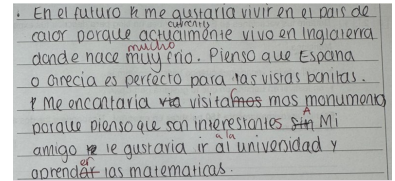 . En el futuro me gustaria vivir en el pais de
calor porque actualmente vivo en Inglaterra
mucho
donde hace muy frio. Pienso que Espana
o Grecia es perfecto para las vistas bonitas.
Me encantaria visitamos mas monumentos
porque pienso que son interestantes Mi
amigo le gustaria ir al univenidad y
aprender las matematicas.